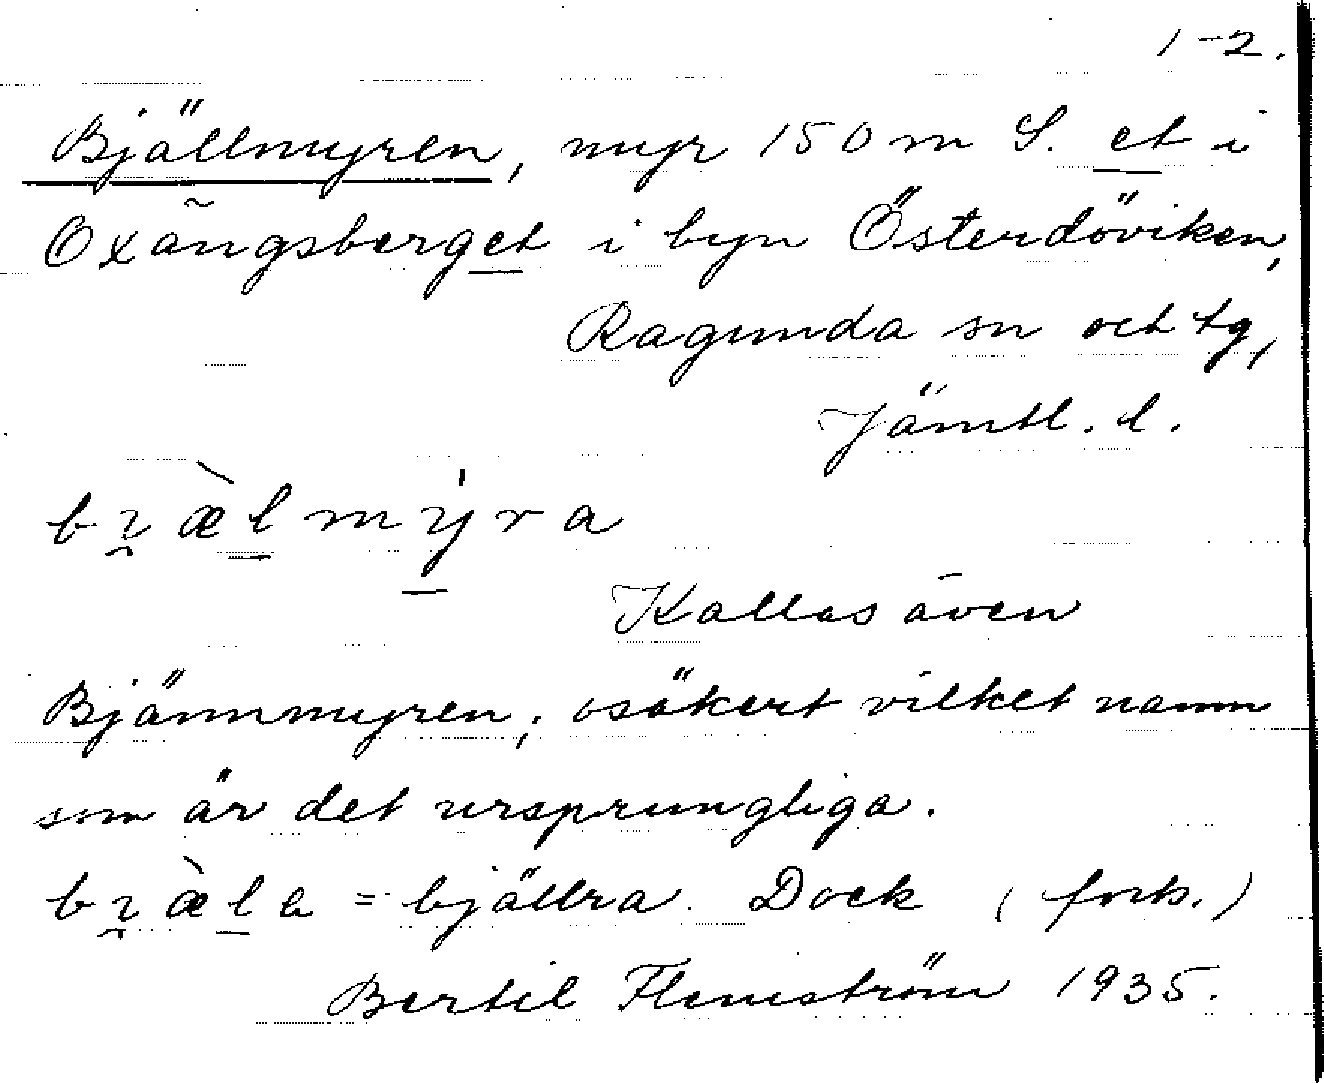 1-2.
Bjällmyren, myr 150 m S. et i
Oxängsberget i byn Österdöviken,
Ragunda sn och tg,
Jämtl. l.
bɿ̯æ̀lmy̍ra
Kallas även
Bjännmyren, osäkert vilket namn
som är det ursprungliga.
bɿ̯æ̀la = bjällra. Dock (forts.)
Bertil Flemström 1935.